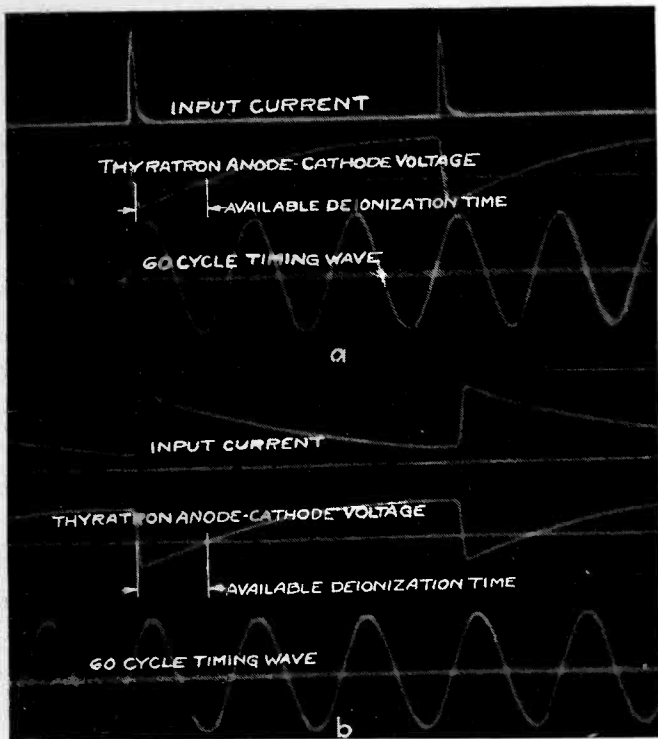 INPUT CURRENT
THYRATRON ANODE-CATHODE VOLTAGE
AVAILABLE DEIONIZATION TIME
60 CYCLE TIMING WAVE
a
INPUT CURRENT
THYRATRON ANODE-CATHODE VOLTAGE
AVAILABLE DEIONIZATION TIME
60 CYCLE TIMING WAVE
b